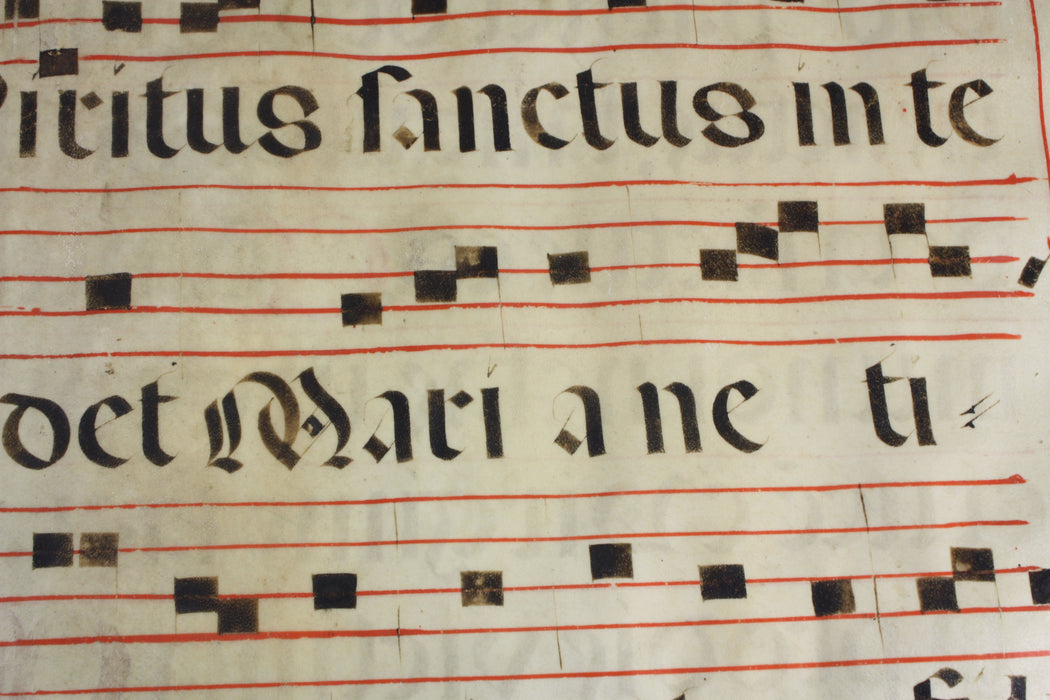 piritus sanctus in te
det Mari a ne ti=